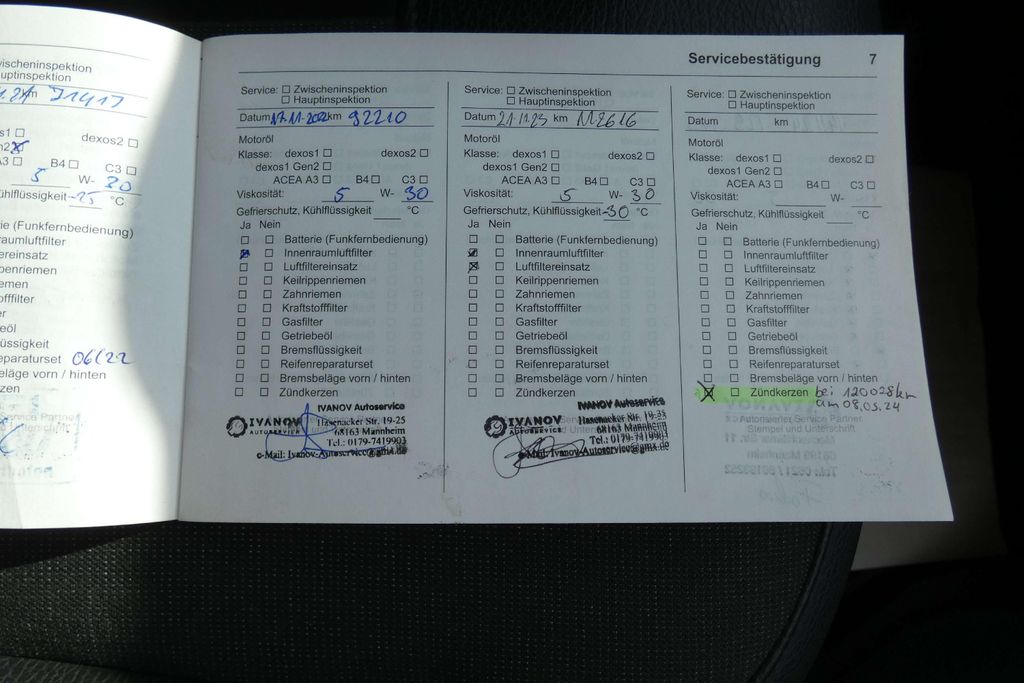 Servicebestätigung 7
wischeninspektion
uptinspektion
km 71417
dexos2
B4 C3
5 W- 30
ühlflüssigkeit -25 °C
rie (Funkfernbedienung)
raumluftfilter
ereinsatz
penriemen
emen
offfilter
er
beöl
lüssigkeit
eparaturset 06/22
eläge vorn / hinten
zen
Service: Zwischeninspektion
Hauptinspektion
Datum 17.11.2022 km 92210
Motoröl
Klasse: dexos1 dexos2
dexos1 Gen2
ACEA A3 B4 C3
Viskosität: 5 W- 30
Gefrierschutz, Kühlflüssigkeit °C
Ja Nein
Batterie (Funkfernbedienung)
Innenraumluftfilter
Luftfiltereinsatz
Keilrippenriemen
Zahnriemen
Kraftstofffilter
Gasfilter
Getriebeöl
Bremsflüssigkeit
Reifenreparaturset
Bremsbeläge vorn / hinten
Zündkerzen
IVANOV Autoservice
IVANOV Hasenacker Str. 19-25
AUTOSERVICE 68163 Mannheim
Tel.: 0179-7419903
e-Mail: Ivanov-Autoservice@gmx.de
Service: Zwischeninspektion
Hauptinspektion
Datum 21.11.23 km 112616
Motoröl
Klasse: dexos1 dexos2
dexos1 Gen2
ACEA A3 B4 C3
Viskosität: 5 W- 30
Gefrierschutz, Kühlflüssigkeit -30 °C
Ja Nein
Batterie (Funkfernbedienung)
Innenraumluftfilter
Luftfiltereinsatz
Keilrippenriemen
Zahnriemen
Kraftstofffilter
Gasfilter
Getriebeöl
Bremsflüssigkeit
Reifenreparaturset
Bremsbeläge vorn / hinten
Zündkerzen
IVANOV Autoservice
IVANOV Hasenacker Str. 19-25
AUTOSERVICE 68163 Mannheim
Tel.: 0179-7419903
e-Mail: Ivanov-Autoservice@gmx.de
Service: Zwischeninspektion
Hauptinspektion
Datum km
Motoröl
Klasse: dexos1 dexos2
dexos1 Gen2
ACEA A3 B4 C3
Viskosität: W-
Gefrierschutz, Kühlflüssigkeit °C
Ja Nein
Batterie (Funkfernbedienung)
Innenraumluftfilter
Luftfiltereinsatz
Keilrippenriemen
Zahnriemen
Kraftstofffilter
Gasfilter
Getriebeöl
Bremsflüssigkeit
Reifenreparaturset
Bremsbeläge vorn / hinten
Zündkerzen bei 120028km
am 08.05.24
Autorisierter Service Partner
Stempel und Unterschrift